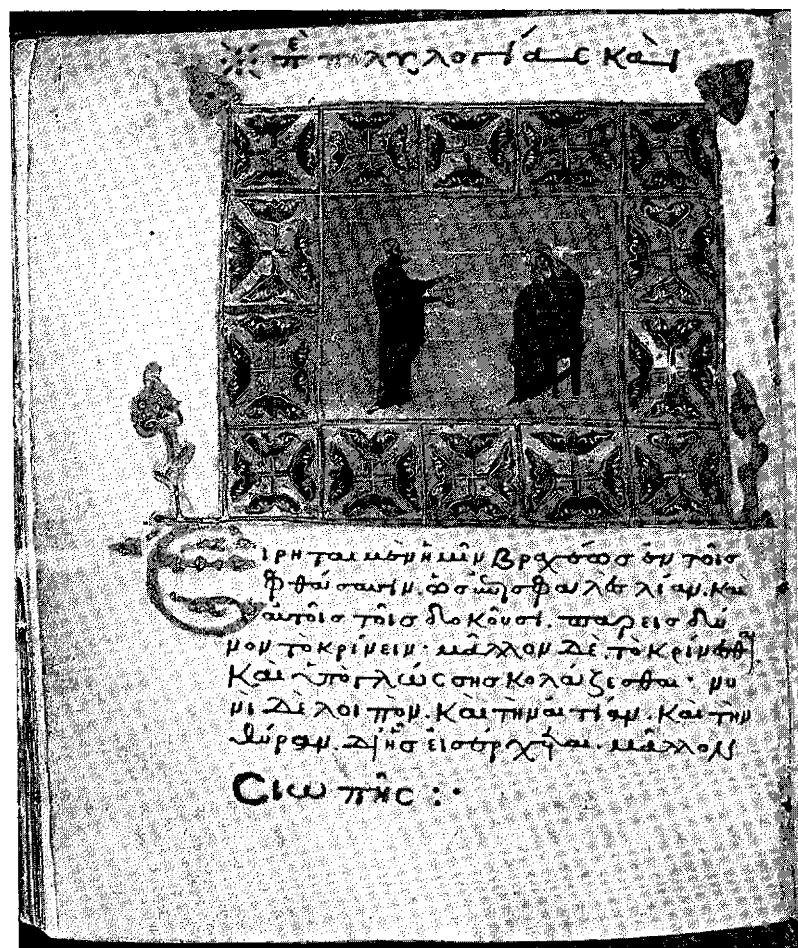 πε πολυλογίας καὶ
Εἴρηται μὲν ἡμῖν βραχέως ἐν τοῖς
φθάσασιν. ὡς ἐπισφαλὲς λίαν. καὶ
αὐτοῖς τοῖς δοκοῦσι. παρεισδύ
νον τὸ κρίνειν· μᾶλλον δὲ. τὸ κρίνεσθαι
καὶ ὑπὸ γλώσσης κολάζεσθαι· νυ
νὶ δὲ λοιπὸν. καὶ τὴν αἰτίαν. καὶ τὴν
θύραν. δι ἧς εἰσέρχεται. μᾶλλον
σιωπῆς :·